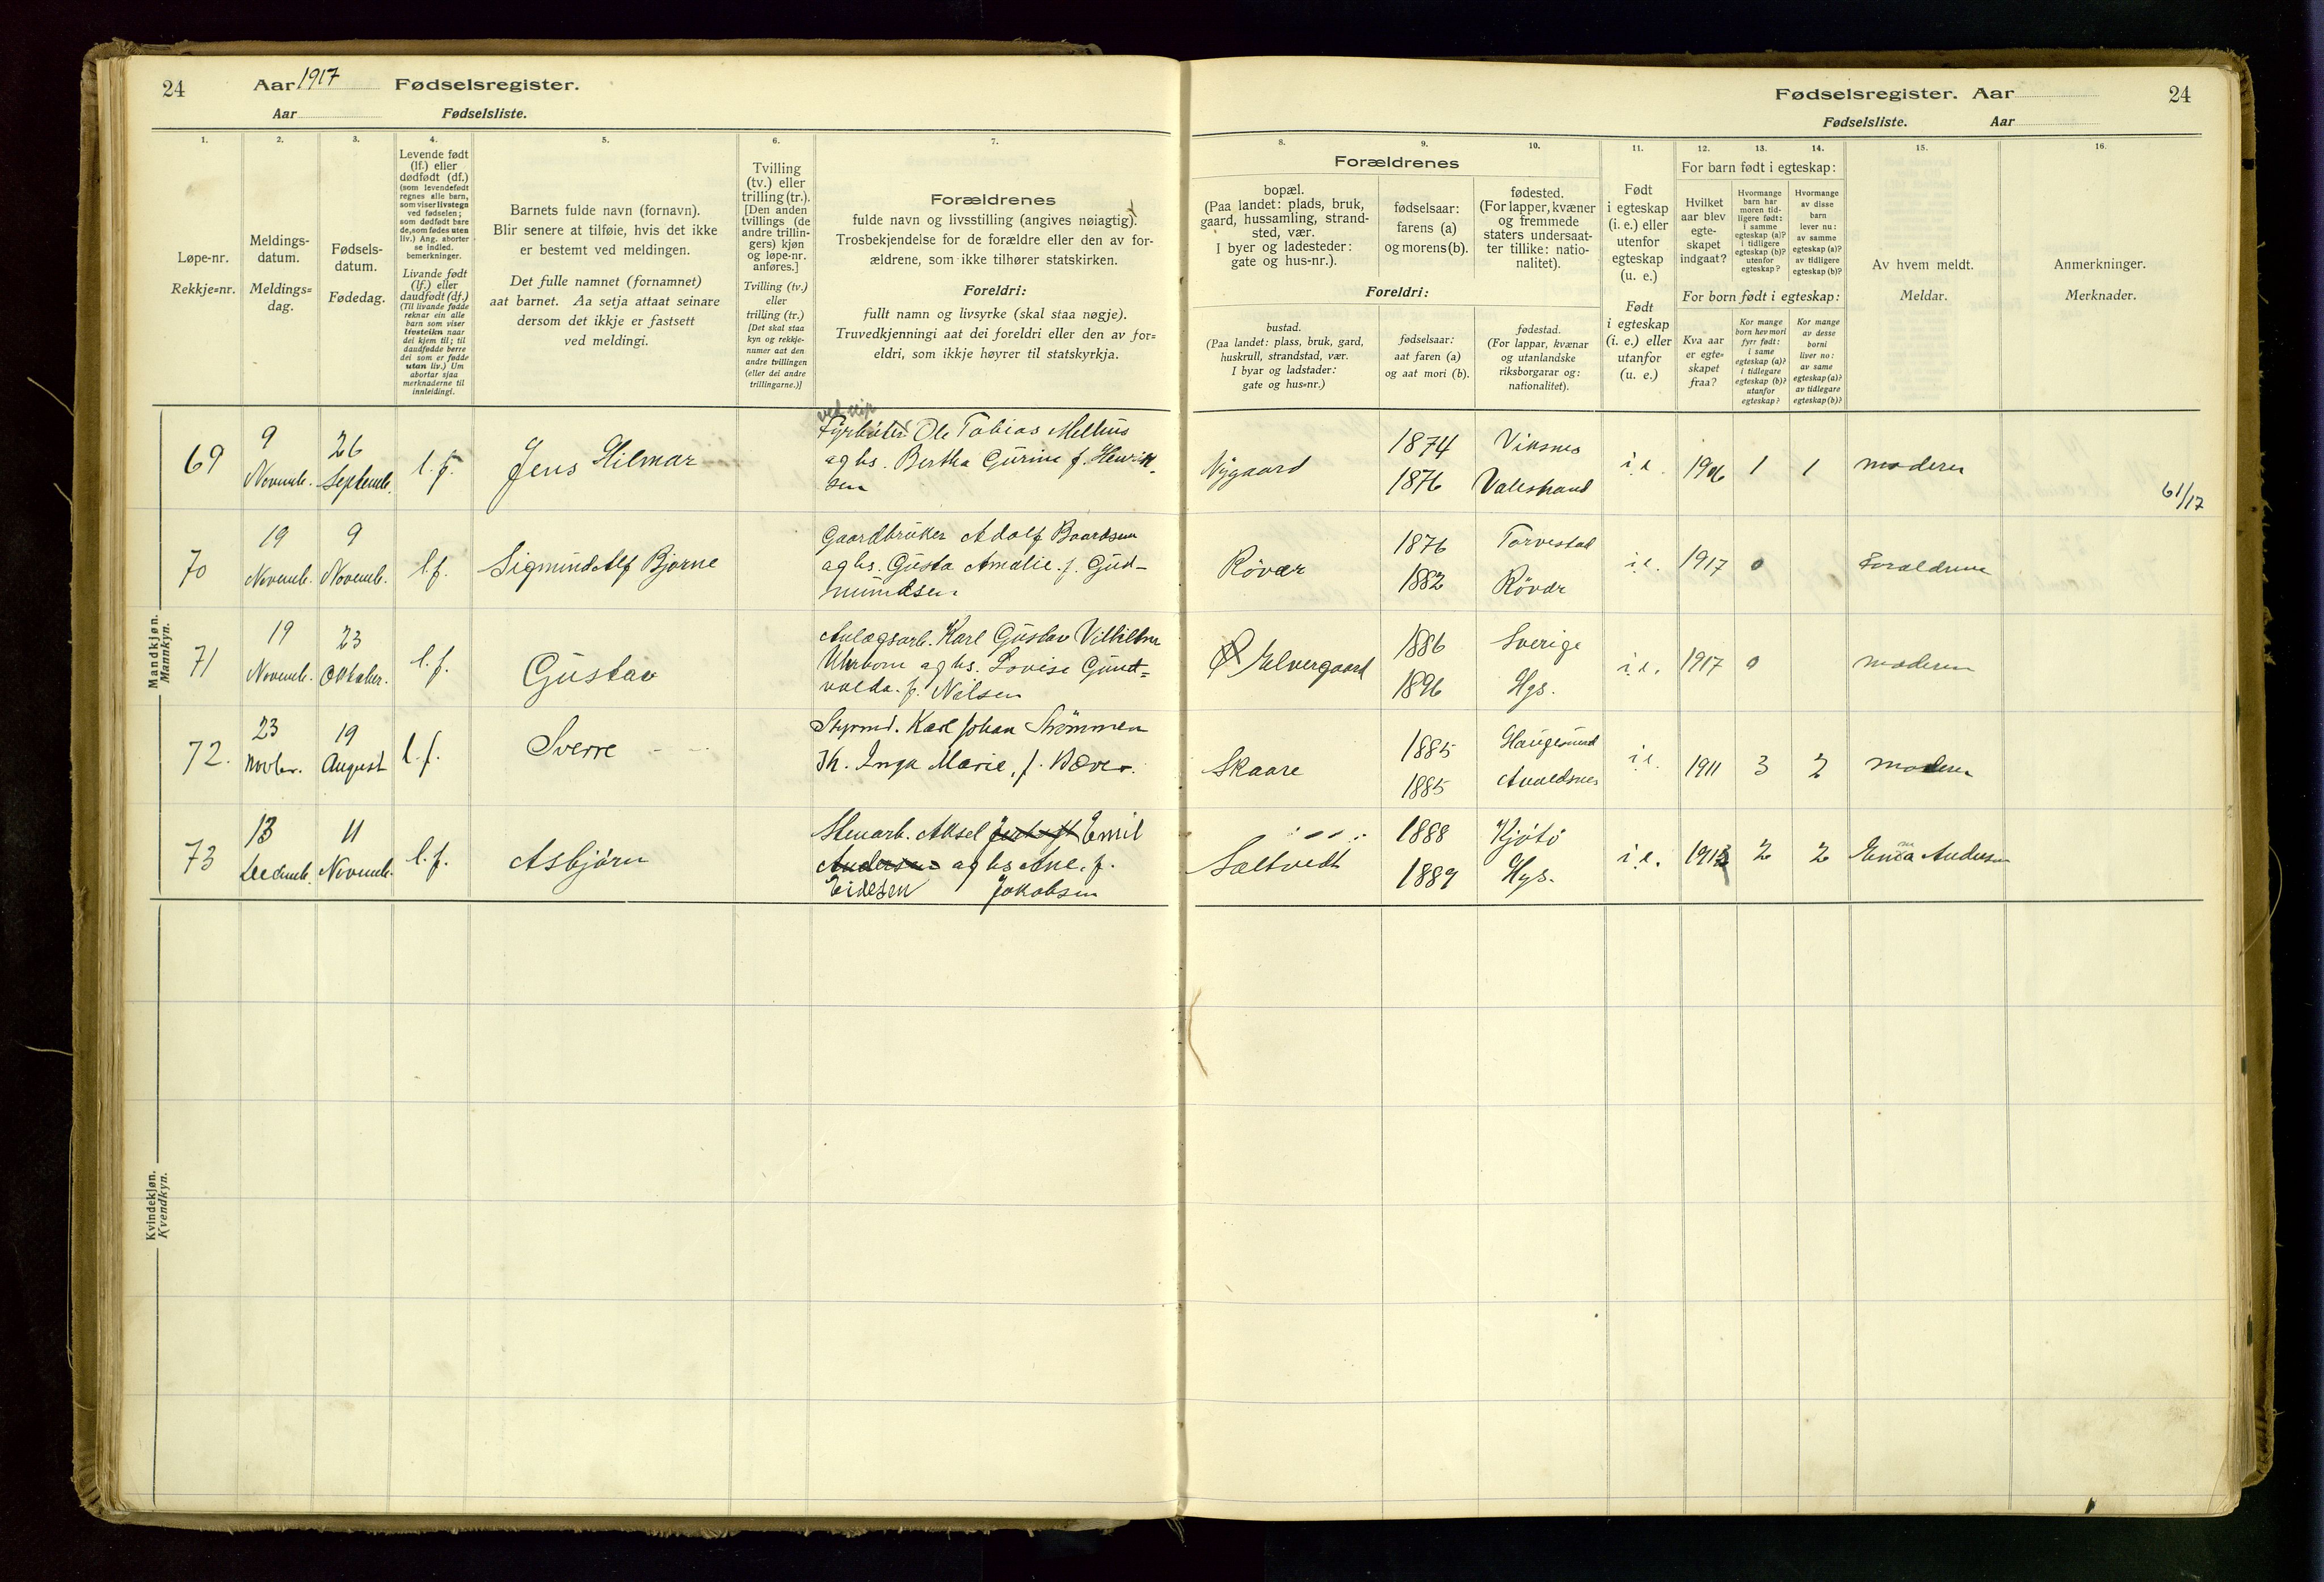 24
Aar 1917 Fødselsregister.
Aar Fødselsliste.
1. 2. 3. 4. 5. 6. 7.
Løpe-nr.
Rekkje=nr.
Meldings-
datum.
Meldings=
dag.
Fødsels-
datum.
Fødedag.
Levende født
(lf.) eller
dødfødt (df.)
(som levendefødt
regnes alle barn,
som viser livstegn
ved fødselen;
som dødfødt bare
de, som fødes uten
liv.) Ang. aborter
se indled.
bemerkninger.
Livande født
(lf.) eller
daudfødt (df.)
(Til livande fødde
reknar ein alle
barn som viser
livsteikn naar
dei kjem til; til
daudfødde berre
dei som er fødde
utan liv.) Um
abortar sjaa
merknaderne til
innleidingi.
Barnets fulde navn (fornavn).
Blir senere at tilføie, hvis det ikke
er bestemt ved meldingen.
Det fulle namnet (fornamnet)
aat barnet. Aa setja attaat seinare
dersom det ikkje er fastsett
ved meldingi.
Tvilling
(tv.) eller
trilling (tr.).
[Den anden
tvillings (de
andre trillin-
gers) kjøn
og løpe-nr.
anføres.]
Tvilling (tv.)
eller
trilling (tr.)
[Det skal staa
kyn og rekkje-
numer aat den
andre tvillingen
(eller dei andre
trillingarne.)]
Forældrenes
fulde navn og livsstilling (angives nøiagtig).
Trosbekjendelse for de forældre eller den av for-
ældrene, som ikke tilhører statskirken.
Foreldri:
fullt namn og livsyrke (skal staa nøgje).
Truvedkjenningi aat dei foreldri eller den av for=
eldri, som ikkje høyrer til statskyrkja.
Mandkjøn.
Mannkyn.
69
9
Novemb.
26
Septemb.
l.f.
Jens Hilmar
Fyrbøter Ole Tobias Melhus
og hs. Bertha Gurine f. Henrik-
sen
70
19
Novemb.
9
Novemb.
l.f.
Sigmund Alf Bjarne
Gaardbruker Adolf Baardsen
og hs. Gusta Amalie f. Gud-
mundsen
71
19
Novemb.
23
Oktober.
l.f.
Gustav
Anlægsarb. Karl Gustav
og hs. Lovise
f. Nilsen
72.
23
Novbr.
19
August
l.f.
Sverre
Styrmd. Karl Johan Strømmen
Inga Marie, f. Bøver.
73
13
Decemb.
11
Novemb.
l.f.
Asbjørn
Stenarb. Aksel Emil
Andersen og hs Ane. f.
Eidesen Jakobsen
Kvindekjøn.
Kvendkyn.
Fødselsregister. Aar
24
Fødselsliste. Aar
8. 9. 10. 11. 12. 13. 14. 15. 16.
Forældrenes
bopæl.
(Paa landet: plads, bruk,
gaard, hussamling, strand-
sted, vær.
I byer og ladesteder:
gate og hus-nr.).
fødselsaar:
farens (a)
og morens (b).
fødested.
(For lapper, kvæner
og fremmede
staters undersaat-
ter tillike: natio-
nalitet).
Foreldri:
bustad.
(Paa landet: plass, bruk, gard,
huskrull, strandstad, vær.
I byar og ladstader:
gate og hus=nr.)
fødselsaar:
aat faren (a)
og aat mori (b).
fødestad.
(For lappar, kvænar
og utanlandske
riksborgarar og:
nationalitet).
Født
i egteskap
(i. e.) eller
utenfor
egteskap
(u. e.)
Født
i egteskap
(i. e.) eller
utanfor
(u. e.)
For barn født i egteskap:
Hvilket
aar blev
egte-
skapet
indgaat?
Hvormange
barn har
moren tid-
ligere født:
i samme
egteskap (a)?
i tidligere
egteskap (b)?
utenfor
egteskap?
Hvormange
av disse
barn
lever nu:
av samme
egteskap (a)?
av tidligere
egteskap (b)?
For born født i egteskap:
Kva aar
er egte=
skapet
fraa?
Kor mange
born hev mori
fyrr født:
i same
egteskap (a)?
i tidlegare
egteskap (b)?
utanfor
egteskap?
Kor mange
av desse
borni
liver no:
av same
egteskap (a)?
av tidlegare
egteskap (b)?
Av hvem meldt.
Meldar.
Anmerkninger.
Merknader.
Nygaard
1874
1876
Viksnes
Valestrand
i.e.
1906
1
1
moderen
61/17
Røvær
1876
1882
Torvestad
Røvær
i.e.
1917
0
Forældrene
Elvergaard
1886
1896
Sverige
Hgs.
i.e.
1917
0
moderen
Skaare
1885
1885
Haugesund
Avaldsnes
i.e.
1911
3
2
moderen
Saltvedt
1888
1889
Kjøtø
Hgs.
i.e.
1913
2
2
Emma Andersen